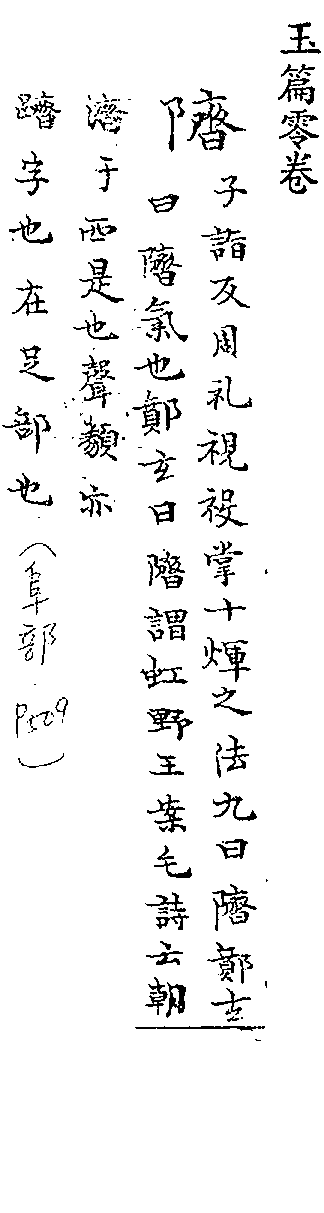 玉篇零卷
隮 子詣反周礼視祲掌十煇之法九曰隮鄭玄
曰隮氣也鄭玄曰隮謂虹野王案毛詩云朝
隮于西是也聲類亦
躋字也在足部也(阜部 P509)